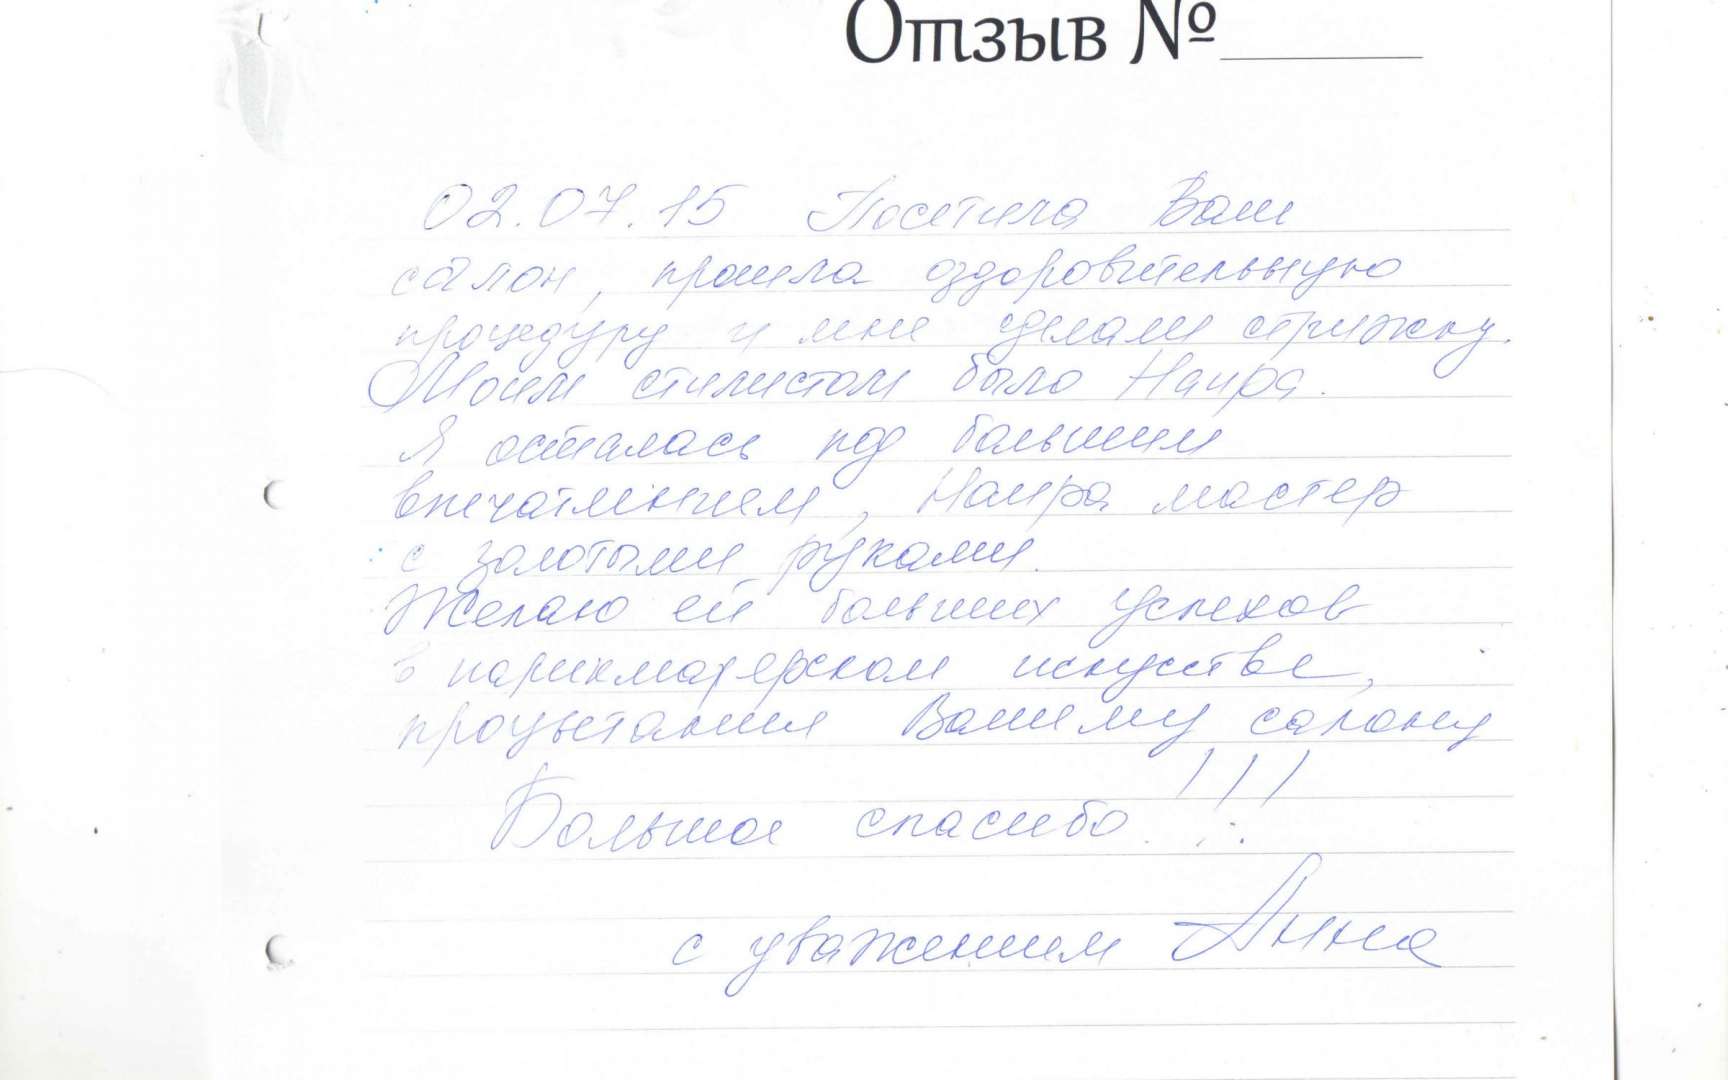 Отзыв №
02.07.15 Посетила Ваш
салон, прошла оздоровительную
процедуру и мне сделали стрижку.
Моим стилистом была Наира.
Я осталась под большим
впечатлением, Наира мастер
с золотыми руками.
Желаю ей больших успехов
в парикмахерском искусстве,
процветания Вашему салону
Большое спасибо!!!
с уважением Анна